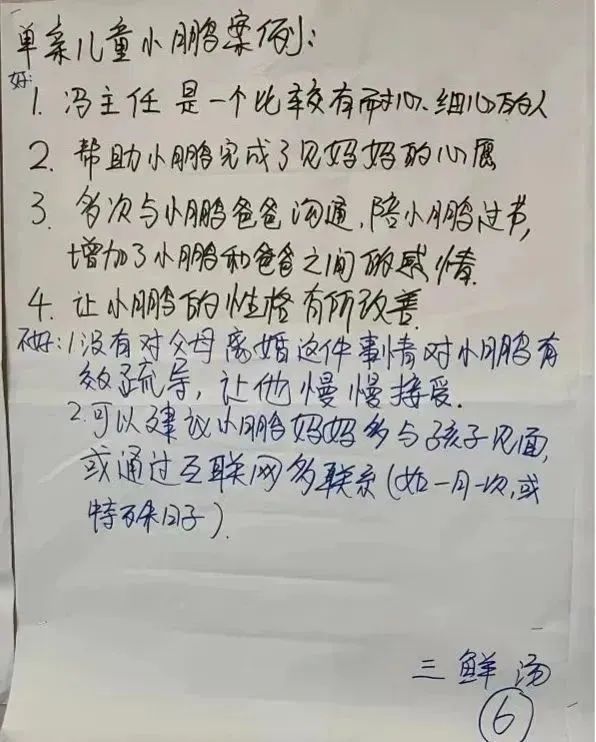 单亲儿童小鹏案例:
好:
1. 冯主任是一个比较有耐心、细心的人
2. 帮助小鹏完成了见妈妈的心愿
3. 多次与小鹏爸爸沟通,陪小鹏过节,
增加了小鹏和爸爸之间的感情.
4. 让小鹏的性格有所改善.
不好:1没有对父母离婚这件事情对小鹏有
效疏导,让他慢慢接受.
2.可以建议小鹏妈妈多与孩子见面,
或通过互联网多联系(如一月一次,或
特殊日子).
三鲜汤
6